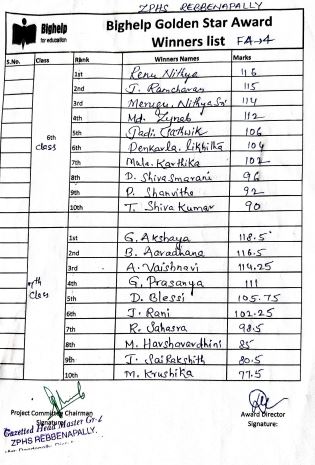 ZPHS REBBENAPALLY
Bighelp
for education
Bighelp Golden Star Award
Winners list FA-4
S.No. Class Rank Winners Names Marks
6th class
1st Renu Nithya 116
2nd J. Ramcharan 115
3rd Merugu. Nithya Sri 114
4th Md. Zynab 112
5th Padi. 106
6th Denkarla. Likhitha 104
7th Mala. Karthika 102
8th D. Shivasmarani 96
9th P. Shanvithe 92
10th T. Shiva Kumar 90
7th Class
1st G. Akshaya 118.5
2nd B. Aaradhana 116.5
3rd A. Vaishnavi 114.25
4th G. Prasanya 111
5th D. Blessi 105.75
6th J. Rani 102.25
7th R. Sahasra 98.5
8th M. Harshavardhini 85
9th J. Sai Rakshith 80.5
10th M. Krushika 77.5
Project Committee Chairman
Signature:
Award Director
Signature:
Gazetted Head Master Gr-I
ZPHS REBBENAPALLY.